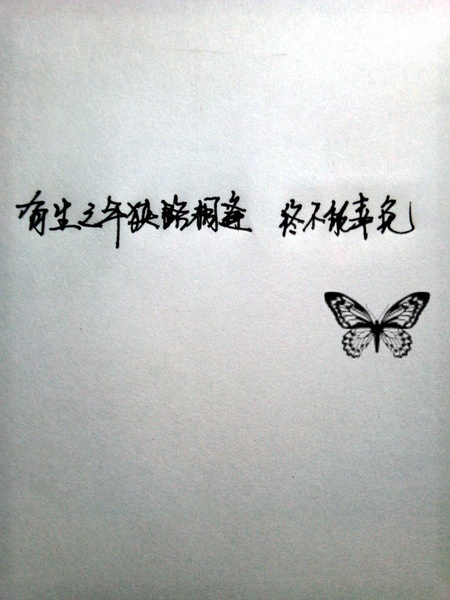 有生之年狭路相逢 终不能幸免